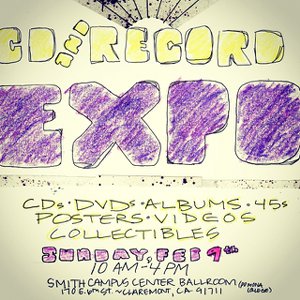 CD AND RECORD
EXPO
CDs · DVDs · ALBUMS · 45s
POSTERS · VIDEOS
COLLECTIBLES
SUNDAY, FEB 9th
10 AM-4 PM
SMITH CAMPUS CENTER BALLROOM (POMONA COLLEGE)
170 E. 6th ST. ~ CLAREMONT, CA 91711